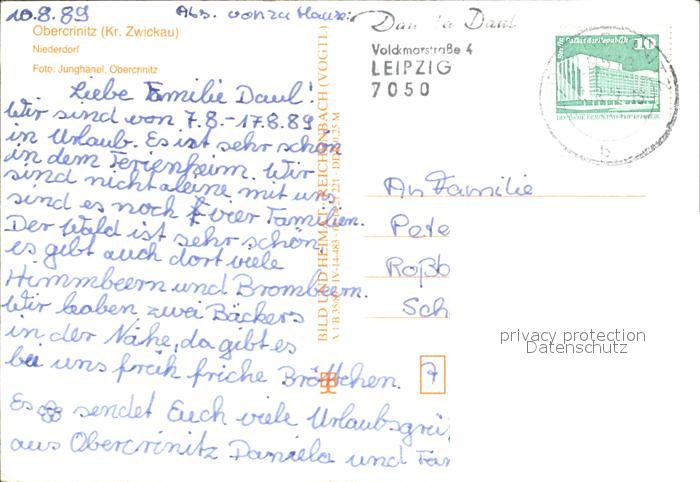 10.8.89 Abs. von zu Hause:
Obercrinitz (Kr. Zwickau)
Niederdorf
Foto: Junghänel, Obercrinitz
Liebe Familie Daul!
Wir sind von 7.8.-17.8.89
in Urlaub. Es ist sehr schön
in dem Ferienheim. Wir
sind nicht aleine mit uns
sind es noch vier Familien.
Der Wald ist sehr schön,
es gibt auch dort viele
Himmbeern und Brombeern.
Wir haben zwei Bäckers
in der Nähe, da gibt es
bei uns frich friche Bröttchen.
Es sendet Euch viele Urlaubsgrü
aus Obercrinitz Daniela und Fam
BILD UND HEIMAT REICHENBACH (VOGTL)
Daul
Volckmarstraße 4
LEIPZIG
7050
10
DEUTSCHE DEMOKRATISCHE REPUBLIK
b
An Familie
Pete
Roßb
Sch
7
privacy protection
Datenschutz